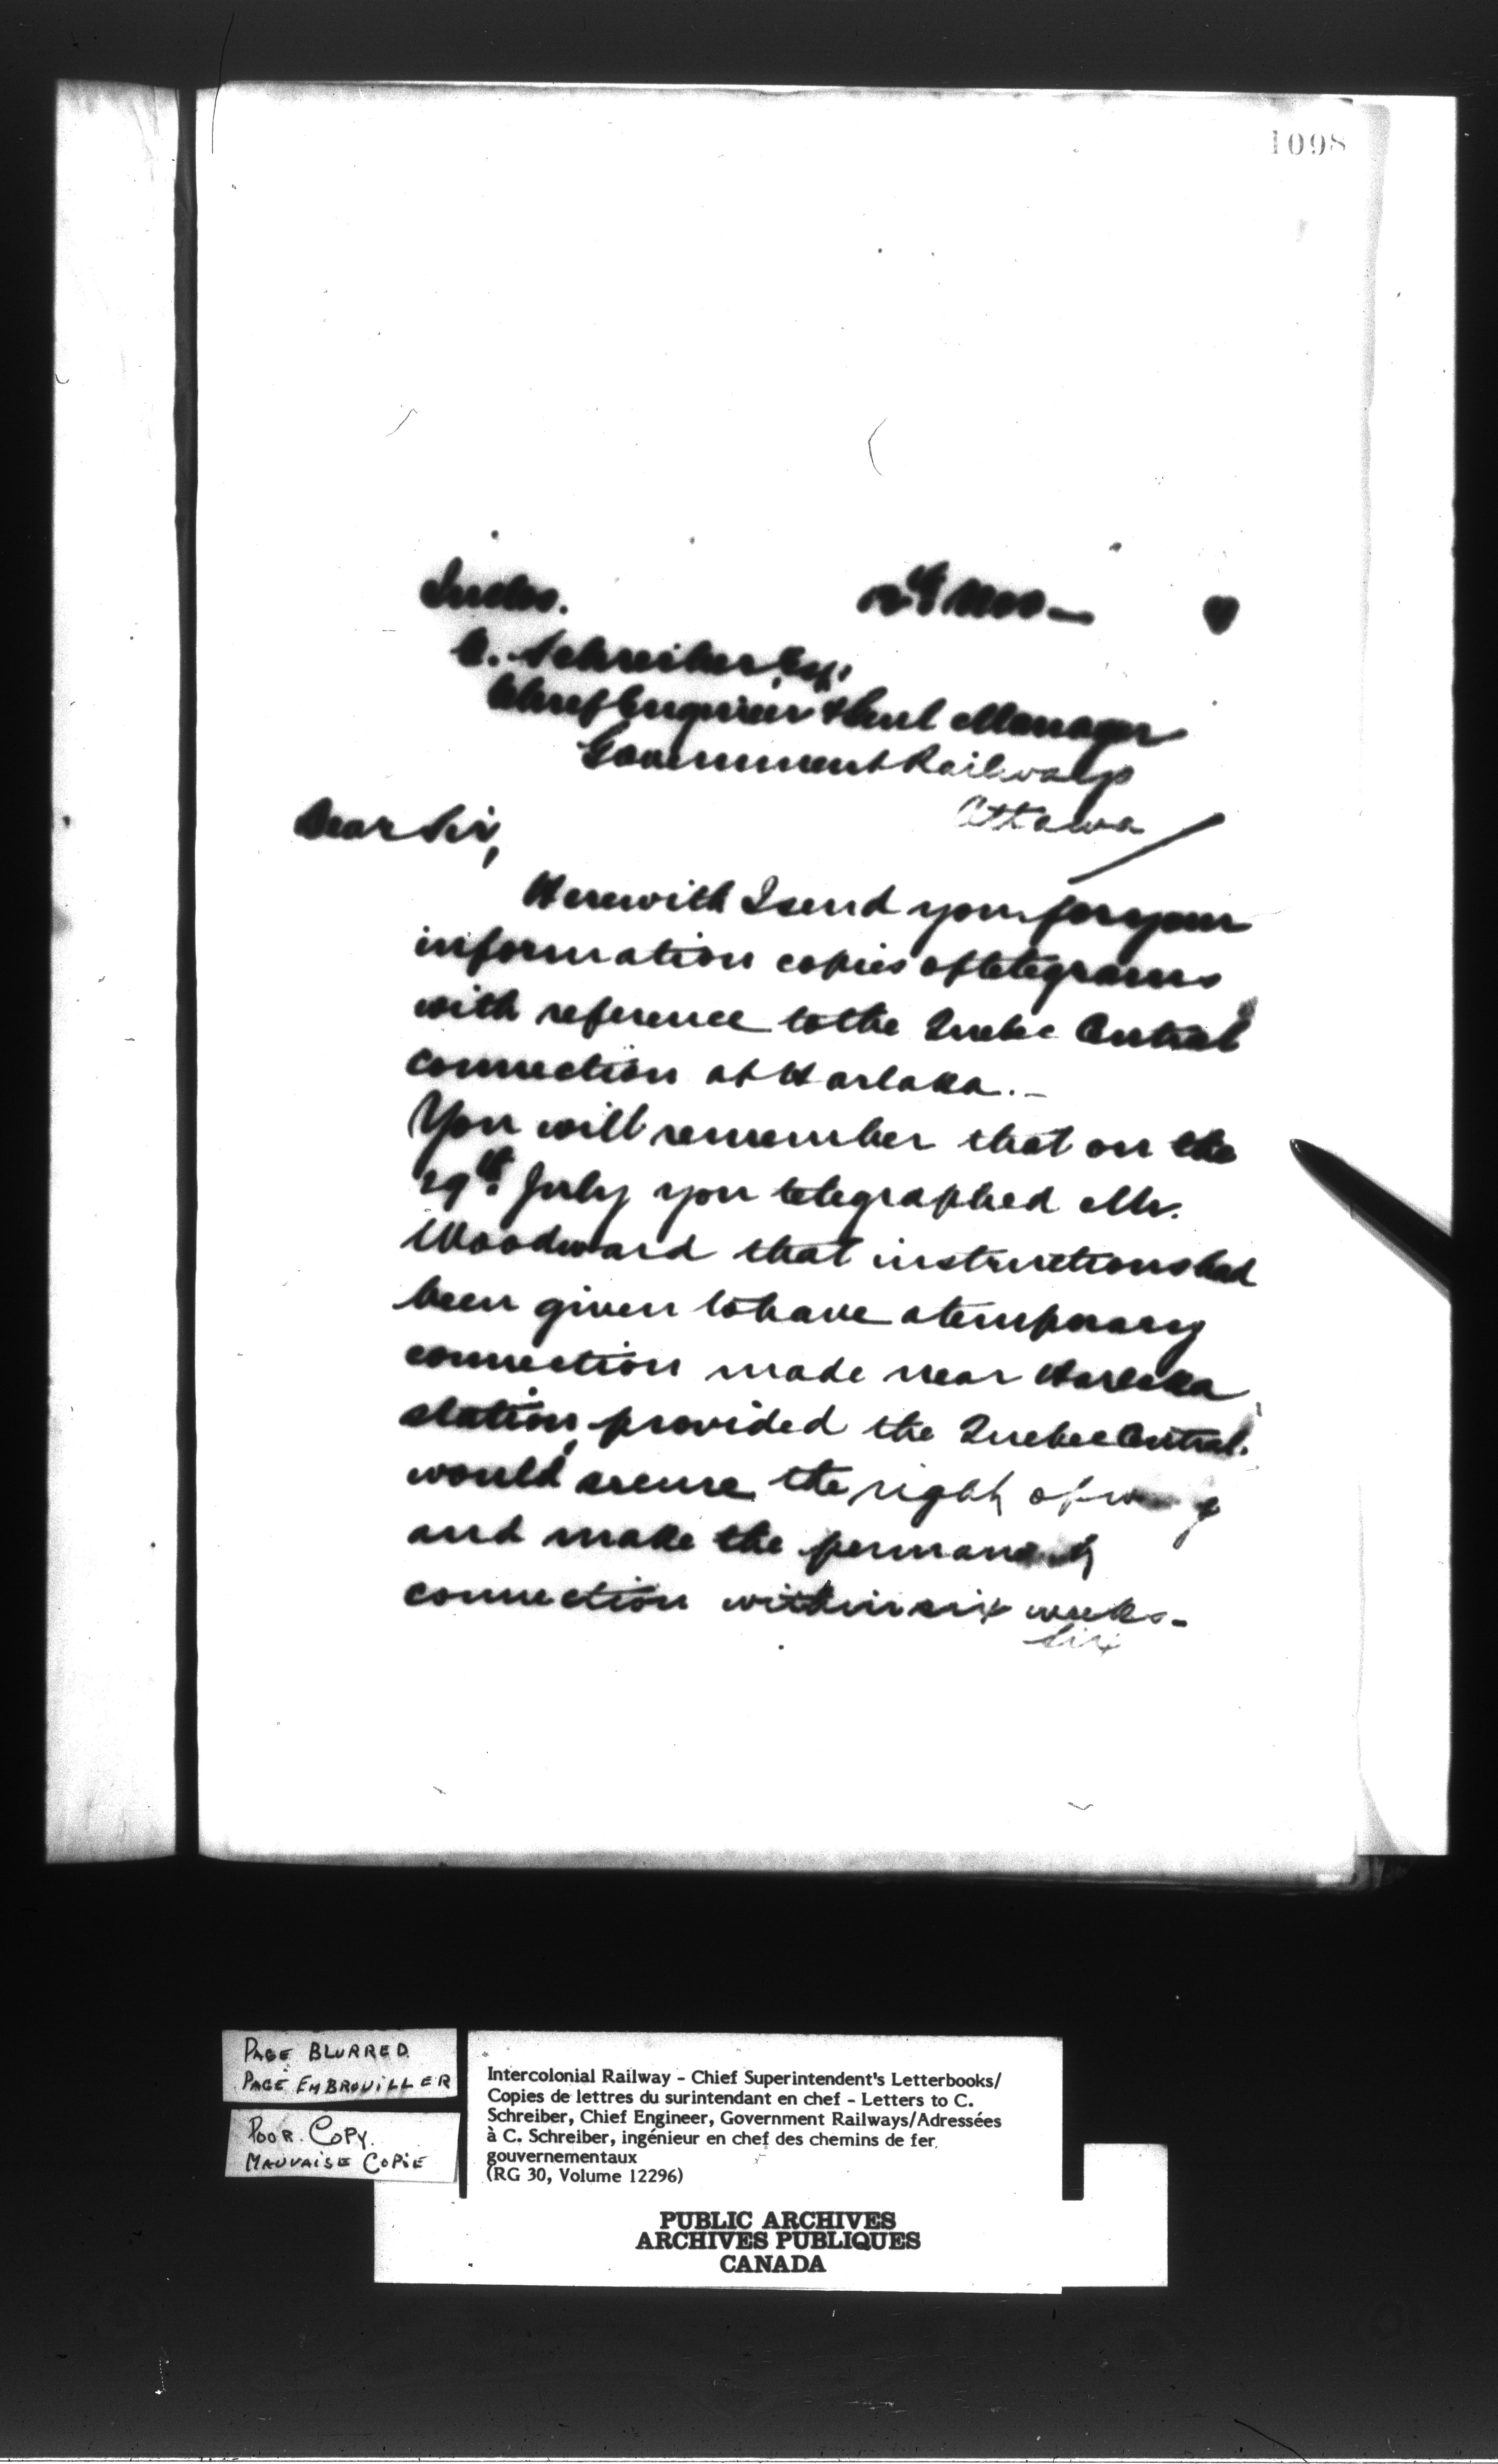 1098
12th Nov
C. Schreiber Esq.
Chief Engineer & Genl Manager
Government Railways
Ottawa
Dear Sir,
Herewith I send you for your
information copies of telegrams
with reference to the Quebec Central
connection at Harlaka.-
You will remember that on the
29th July you telegraphed Mr.
Woodward that instructions had
been given to have a temporary
connection made near Harlaka
station, provided the Quebec Central
would secure the right of way
and make the permanent
connection within six weeks-
Six
PAGE BLURRED
PAGE EMBROUILLER
POOR COPY.
MAUVAISE COPIE
Intercolonial Railway - Chief Superintendent's Letterbooks/
Copies de lettres du surintendant en chef - Letters to C.
Schreiber, Chief Engineer, Government Railways/Adressées
à C. Schreiber, ingénieur en chef des chemins de fer
gouvernementaux
(RG 30, Volume 12296)
PUBLIC ARCHIVES
ARCHIVES PUBLIQUES
CANADA